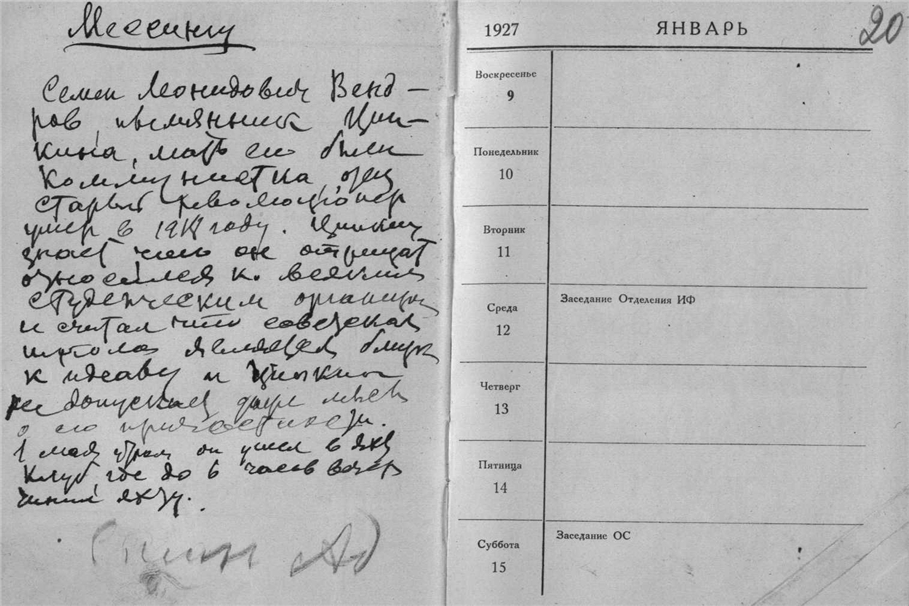 Мессингу
Семен Леонидович Венд-
ров, племянник Цин-
кина, мать его была
коммунистка, отец
старый революционер
умер в году. Цинкин
знает что он отрицат
относился к всяким
студенческим организац
и считал что советская
школа является близк
к идеалу и Цинкин
не допускает даже мысли
о его причастности.
1 мая утром он ушел в яхт
клуб где до 6 часов вечер
чинил яхту.
1927 ЯНВАРЬ 20
Воскресенье
9
Понедельник
10
Вторник
11
Среда
12
Заседание Отделения ИФ
Четверг
13
Пятница
14
Суббота
15
Заседание ОС